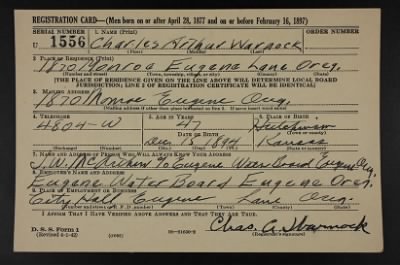 REGISTRATION CARD—(Men born on or after April 28, 1877 and on or before February 16, 1897)
SERIAL NUMBER 1. NAME (Print) ORDER NUMBER
U 1556 Charles Arthur Warnock
2. PLACE OF RESIDENCE (Print)
1870 Monroe Eugene Lane Oreg.
(Number and street) (Town, township, village, or city) (County) (State)
[THE PLACE OF RESIDENCE GIVEN ON THE LINE ABOVE WILL DETERMINE LOCAL BOARD
JURISDICTION; LINE 2 OF REGISTRATION CERTIFICATE WILL BE IDENTICAL]
3. MAILING ADDRESS
1870 Monroe Eugene Oreg.
[Mailing address if other than place indicated on line 2. If same insert word same]
4. TELEPHONE 5. AGE IN YEARS 6. PLACE OF BIRTH
4804-W 47 Hutchinson
DATE OF BIRTH (Town or county)
Dec 15 1894 Kansas
(Mo.) (Day) (Yr.) (State or country)
7. NAME AND ADDRESS OF PERSON WHO WILL ALWAYS KNOW YOUR ADDRESS
J.W. Eugene Water Board Eugene Oreg.
8. EMPLOYER'S NAME AND ADDRESS
Eugene Water Board Eugene Oreg.
9. PLACE OF EMPLOYMENT OR BUSINESS
City Hall Eugene Lane Oreg.
(Number and street or R. F. D. number) (Town) (County) (State)
I AFFIRM THAT I HAVE VERIFIED ABOVE ANSWERS AND THAT THEY ARE TRUE.
D. S. S. Form 1 Chas. A. Warnock
(Revised 4-1-42) (over) (Registrant's signature)